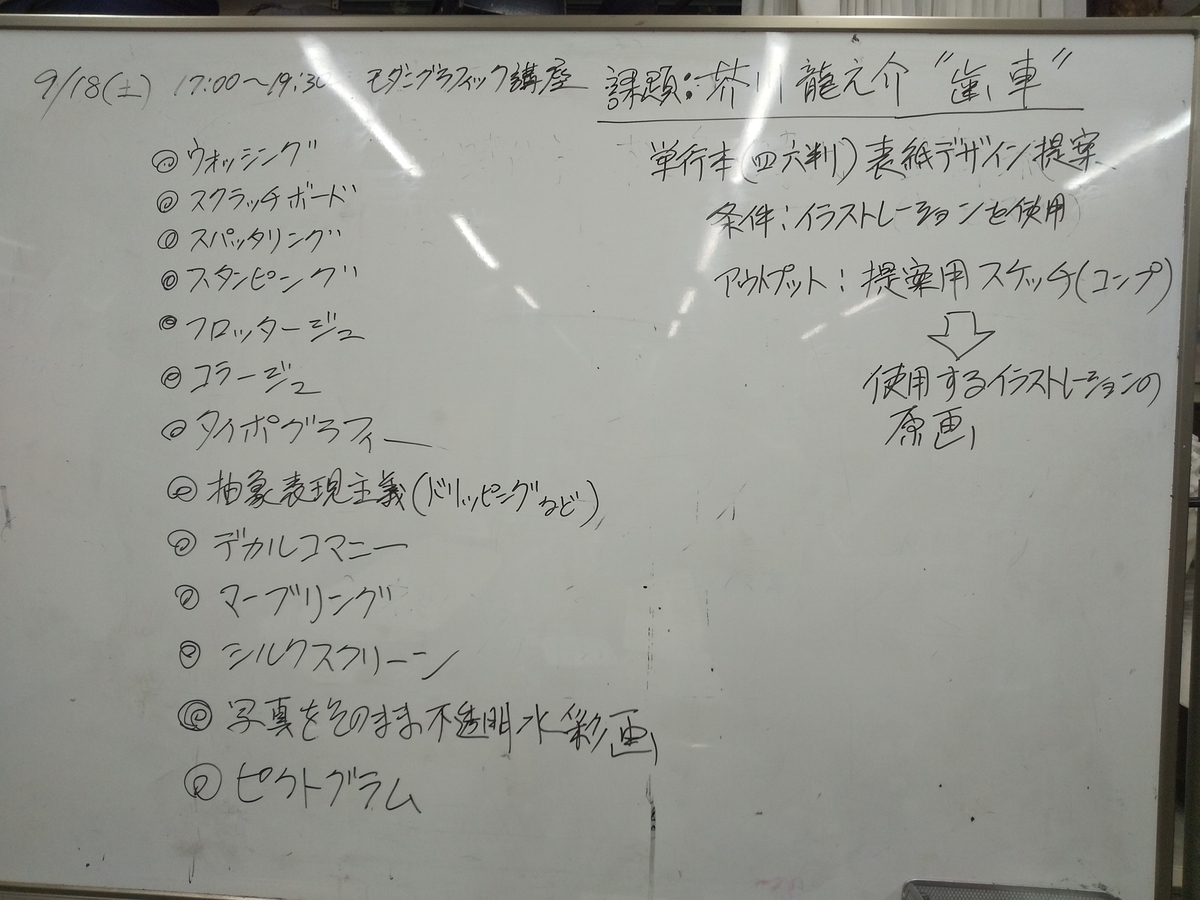 9/18(土) 17:00〜19:30 モダングラフィック講座
課題:芥川龍之介 "歯車"
◎ ウォッシング
◎ スクラッチボード
◎ スパッタリング
◎ スタンピング
◎ フロッタージュ
◎ コラージュ
◎ タイポグラフィー
◎ 抽象表現主義(ドリッピングなど)
◎ デカルコマニー
◎ マーブリング
◎ シルクスクリーン
◎ 写真をそのまま不透明水彩画
◎ ピクトグラム
単行本(四六判)表紙デザイン提案
条件:イラストレーションを使用
アウトプット:提案用スケッチ(コンプ)
⇩
使用するイラストレーションの
原画